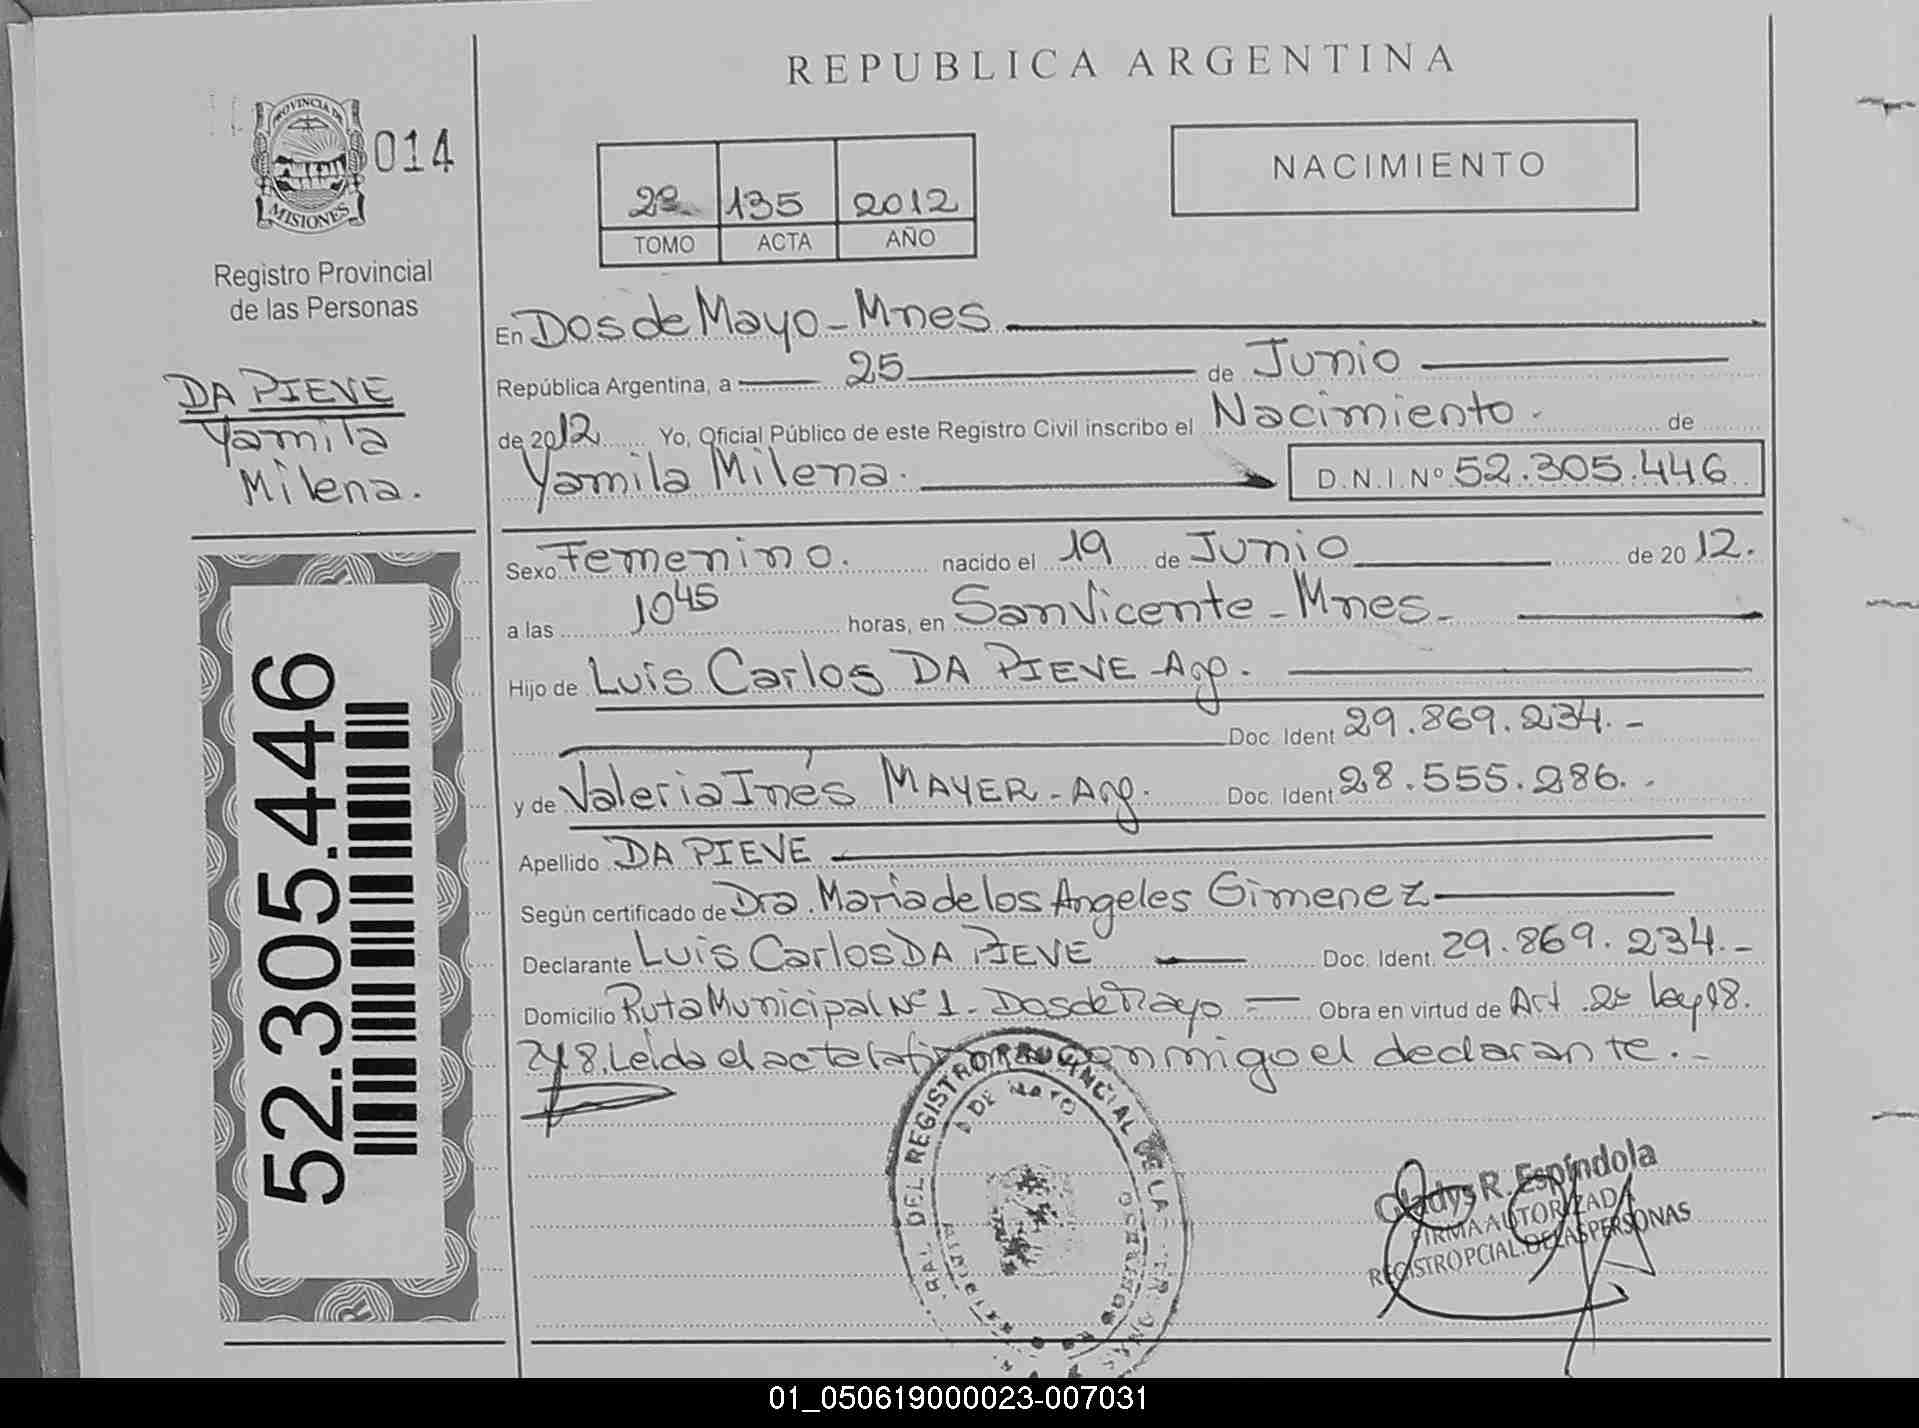 REPUBLICA ARGENTINA
PROVINCIA DE
MISIONES
014
Registro Provincial
de las Personas
DA PIEVE
Yamila
Milena.
52.305.446
2º 135 2012
TOMO ACTA AÑO
NACIMIENTO
En Dos de Mayo - Mnes
República Argentina, a 25 de Junio
de 2012 Yo, Oficial Público de este Registro Civil inscribo el Nacimiento. de
Yamila Milena. D.N.I. Nº 52.305.446
Sexo Femenino. nacido el 19 de Junio de 2012.
a las 10 45 horas, en San Vicente - Mnes.
Hijo de Luis Carlos DA PIEVE - Arg.
Doc. Ident 29.869.234.-
y de Valeria Inés MAYER - Arg. Doc. Ident 28.555.286.-
Apellido DA PIEVE
Según certificado de Dra. Maria de los Angeles Gimenez
Declarante Luis Carlos DA PIEVE Doc. Ident. 29.869.234.-
Domicilio Ruta Municipal Nº 1 - Dos de Mayo - Obra en virtud de Art. 2º Ley 18.
248. Leída el acta la conmigo el declarante.-
DEL REGISTRO PROVINCIAL DE LA
DE MAYO
Gladys R. Espíndola
FIRMA AUTORIZADA
REGISTRO PCIAL. DE LAS PERSONAS
01_050619000023-007031